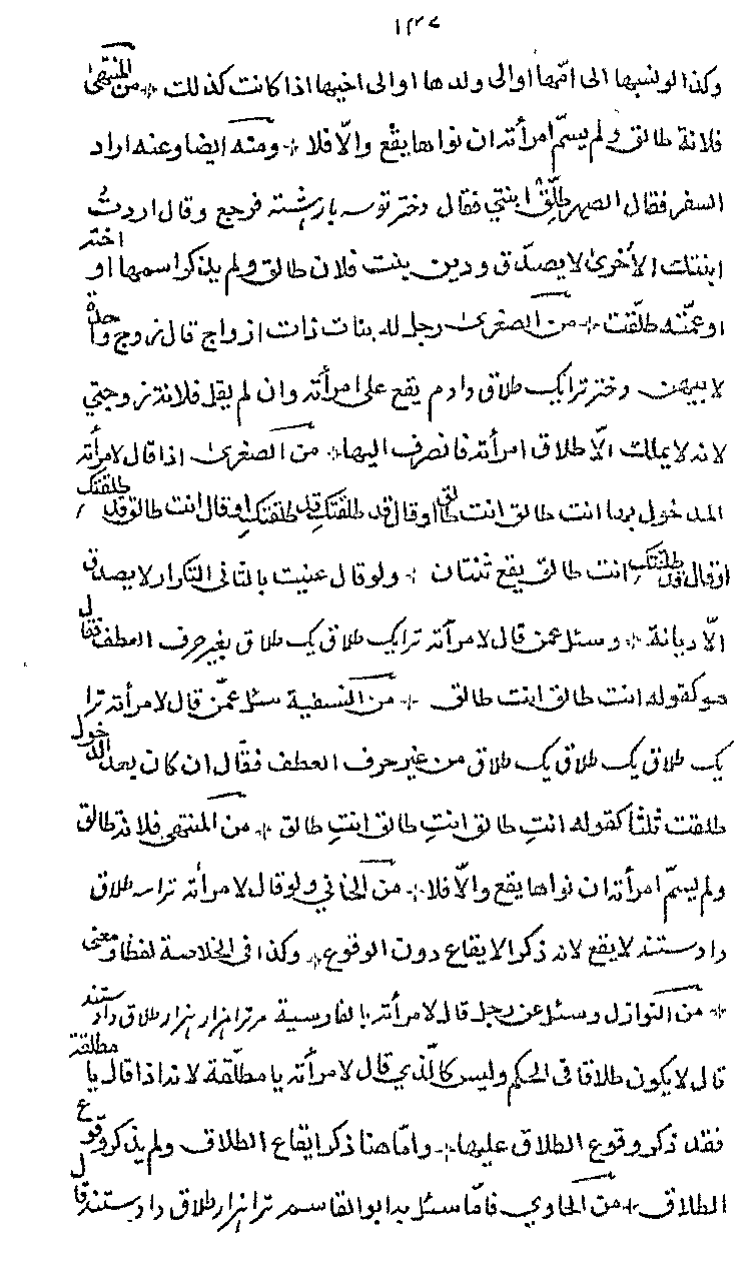 وكذا لو نسبها الى امّها او الى ولدها او الى اخيها اذا كانت كذلك * من المنتهى
فلانة طالق ولم يسمّ امرأته ان نواها يقع والّا فلا * ومنه ايضا وعنه اراد
السفر فقال الصهر طلّق ابنتي فقال دختر توسه بار هشته فرجع وقال اردتُ
ابنتك الأخرى لا يصدّق ودين بنت فلان طالق ولم يذكر اسمها او اختر
او عمّته طلّقت * من الصغرى رجل له بنات ذات ازواج قال زوج واحدة
لا بيهن دختر ترا يك طلاق دادم يقع على امرأته وان لم يقل فلانة زوجتي
لانه لا يملك الّا طلاق امرأته فانصرف اليها * من الصغرى اذا قال لامرأته
المدخول بها انت طالق انت طالق او قال قد طلقتك قد طلقتك او قال انت طالق قد طلقتك
او قال قد طلقتك انت طالق يقع ثنتان * ولو قال عنيت بالثاني التكرار لا يصدق
الّا ديانة * وسئل عمن قال لامرأته ترا يك طلاق يك طلاق بغير حرف العطف فقال
هو كقوله انت طالق انت طالق * من النسفية سئل عمّن قال لامرأته ترا
يك طلاق يك طلاق يك طلاق من غير حرف العطف فقال ان كان بعد الدخول
طلقت ثلثا كقوله انتِ طالق انتِ طالق انتِ طالق * من المنتهى فلانة طالق
ولم يسمّ امرأته ان نواها يقع والّا فلا * من الخاني ولو قال لامرأته ترا سه طلاق
دادستند لا يقع لانه ذكر الايقاع دون الوقوع * وكذا في الخلاصة لفظا ومعنى
* من النوازل وسئل عن رجل قال لامرأته بالفارسية مر ترا هزار هزار طلاق دادستند
قال لا يكون طلاقا في الحكم وليس كالّذي قال لامرأته يا مطلّقة لانه اذا قال يا مطلقة
فقد ذكر وقوع الطلاق عليها * وامّا هنا ذكر ايقاع الطلاق ولم يذكر وقوع
الطلاق * من الحاوي فامّا سئل به ابو القاسم ترا هزار طلاق دادستند قال